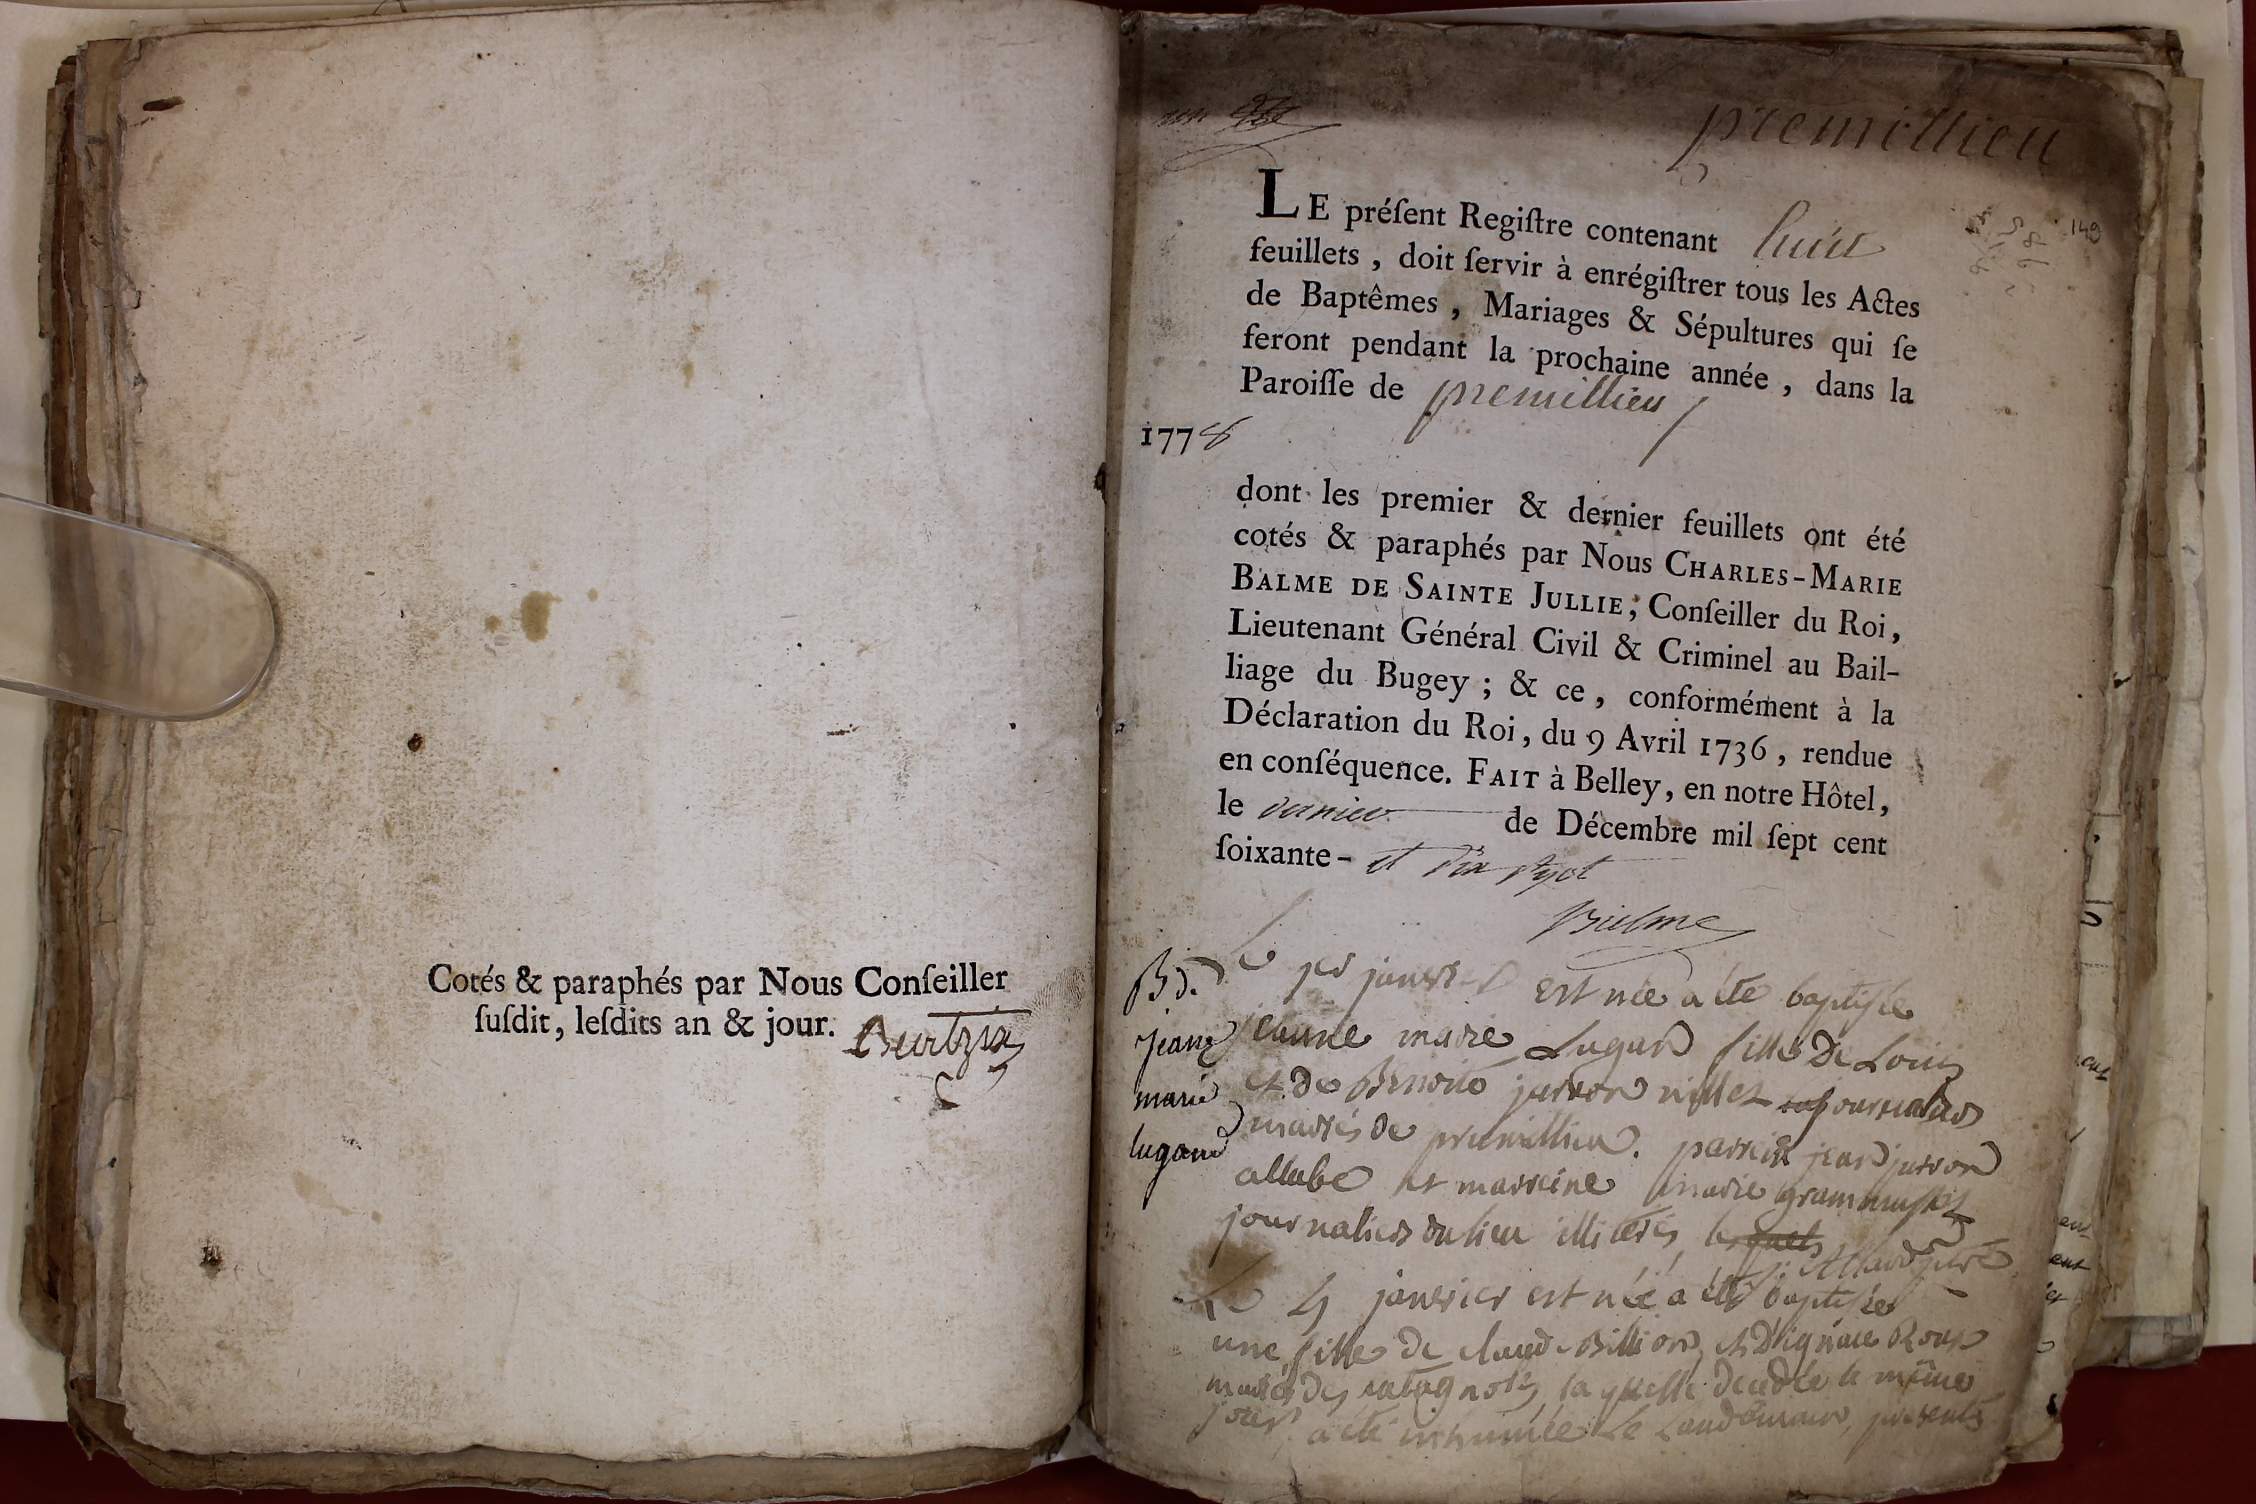 Cotés & paraphés par Nous Conſeiller
ſuſdit, leſdits an & jour.
premillieu
149
LE préſent Regiſtre contenant huit
feuillets, doit ſervir à enrégiſtrer tous les Actes
de Baptêmes, Mariages & Sépultures qui ſe
feront pendant la prochaine année, dans la
Paroiſſe de premillieu
1778
dont les premier & dernier feuillets ont été
cotés & paraphés par Nous CHARLES-MARIE
BALME DE SAINTE JULLIE, Conſeiller du Roi,
Lieutenant Général Civil & Criminel au Bail-
liage du Bugey ; & ce, conformément à la
Déclaration du Roi, du 9 Avril 1736, rendue
en conſéquence. FAIT à Belley, en notre Hôtel,
le dernier de Décembre mil ſept cent
ſoixante- et dix Sept
Balme
Bd.
jeanne
marie
lugand
Le 1er janvier est née a été baptisée
jeanne marie Lugand fille de Louis
et de Benoite journaliers
mariés de premillieu. parrein jean
et marreine marie
journaliers du lieu illiterés
Le 4 janvier est née a été baptisée
une fille de claud Billion et
mariés des catagnoles, laquelle decedée le même
jour a été inhumée le landemain, presents